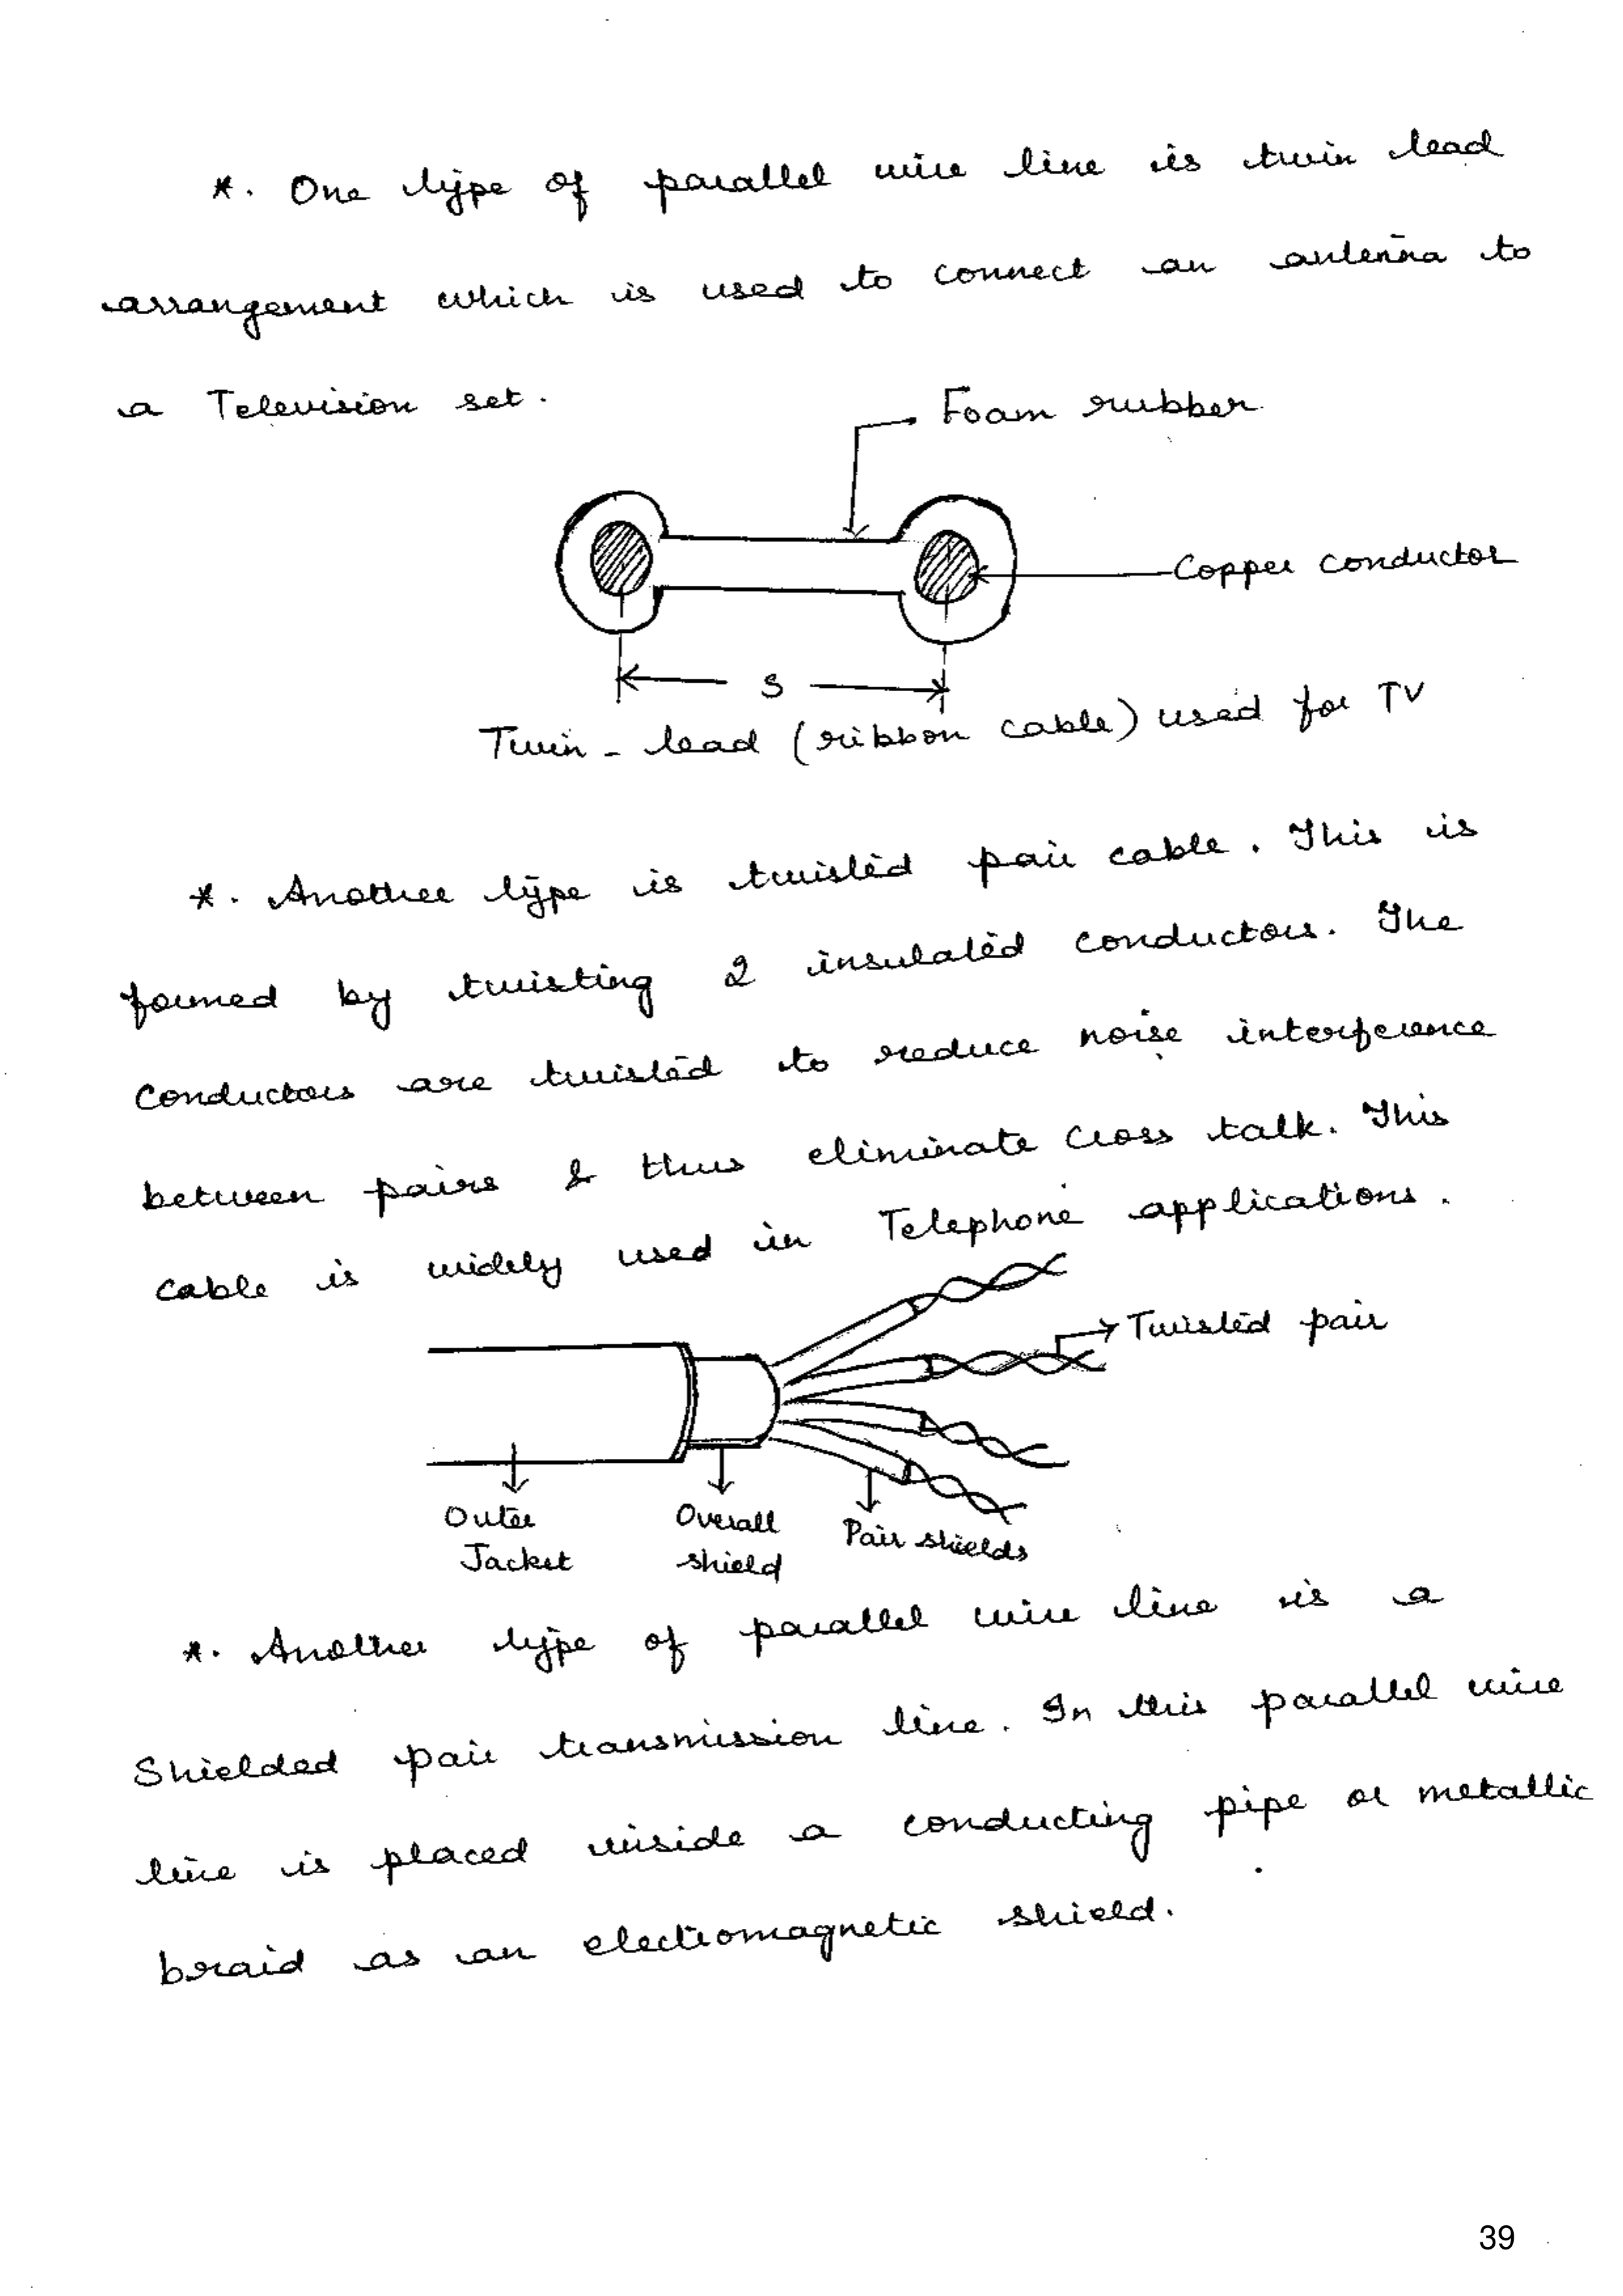 *. One type of parallel wire line is twin lead
arrangement which is used to connect an antenna to
a Television set.
Foam rubber
Copper conductor
S
Twin - lead (ribbon cable) used for TV
*. Another type is twisted pair cable. This is
formed by twisting 2 insulated conductors. The
conductors are twisted to reduce noise interference
between pairs & thus eliminate cross talk. This
cable is widely used in Telephone applications.
Twisted pair
Outer
Jacket
Overall
shield
Pair shields
*. Another type of parallel wire line is a
Shielded pair transmission line. In this parallel wire
line is placed inside a conducting pipe or metallic
braid as an electromagnetic shield.
39